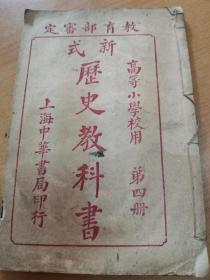 教育部審定
新式
高等小學校用 第四册
歷史教科書
上海中華書局印行